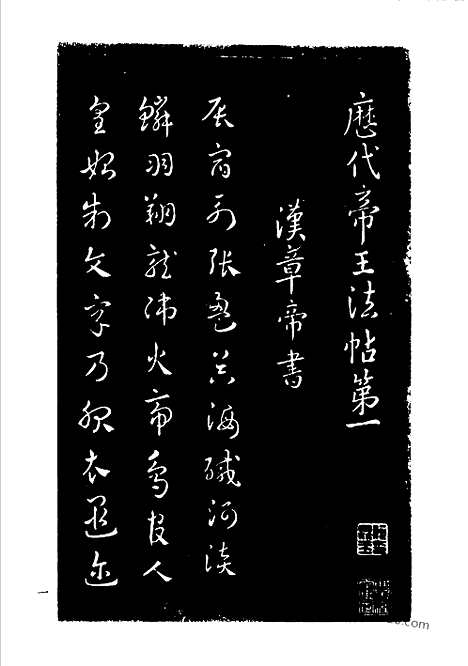 歷代帝王法帖第一
漢章帝書
辰宿列張盈昃海醎河淡
鱗羽翔龍師火帝鳥官人
皇始制文字乃服衣裳推位
一